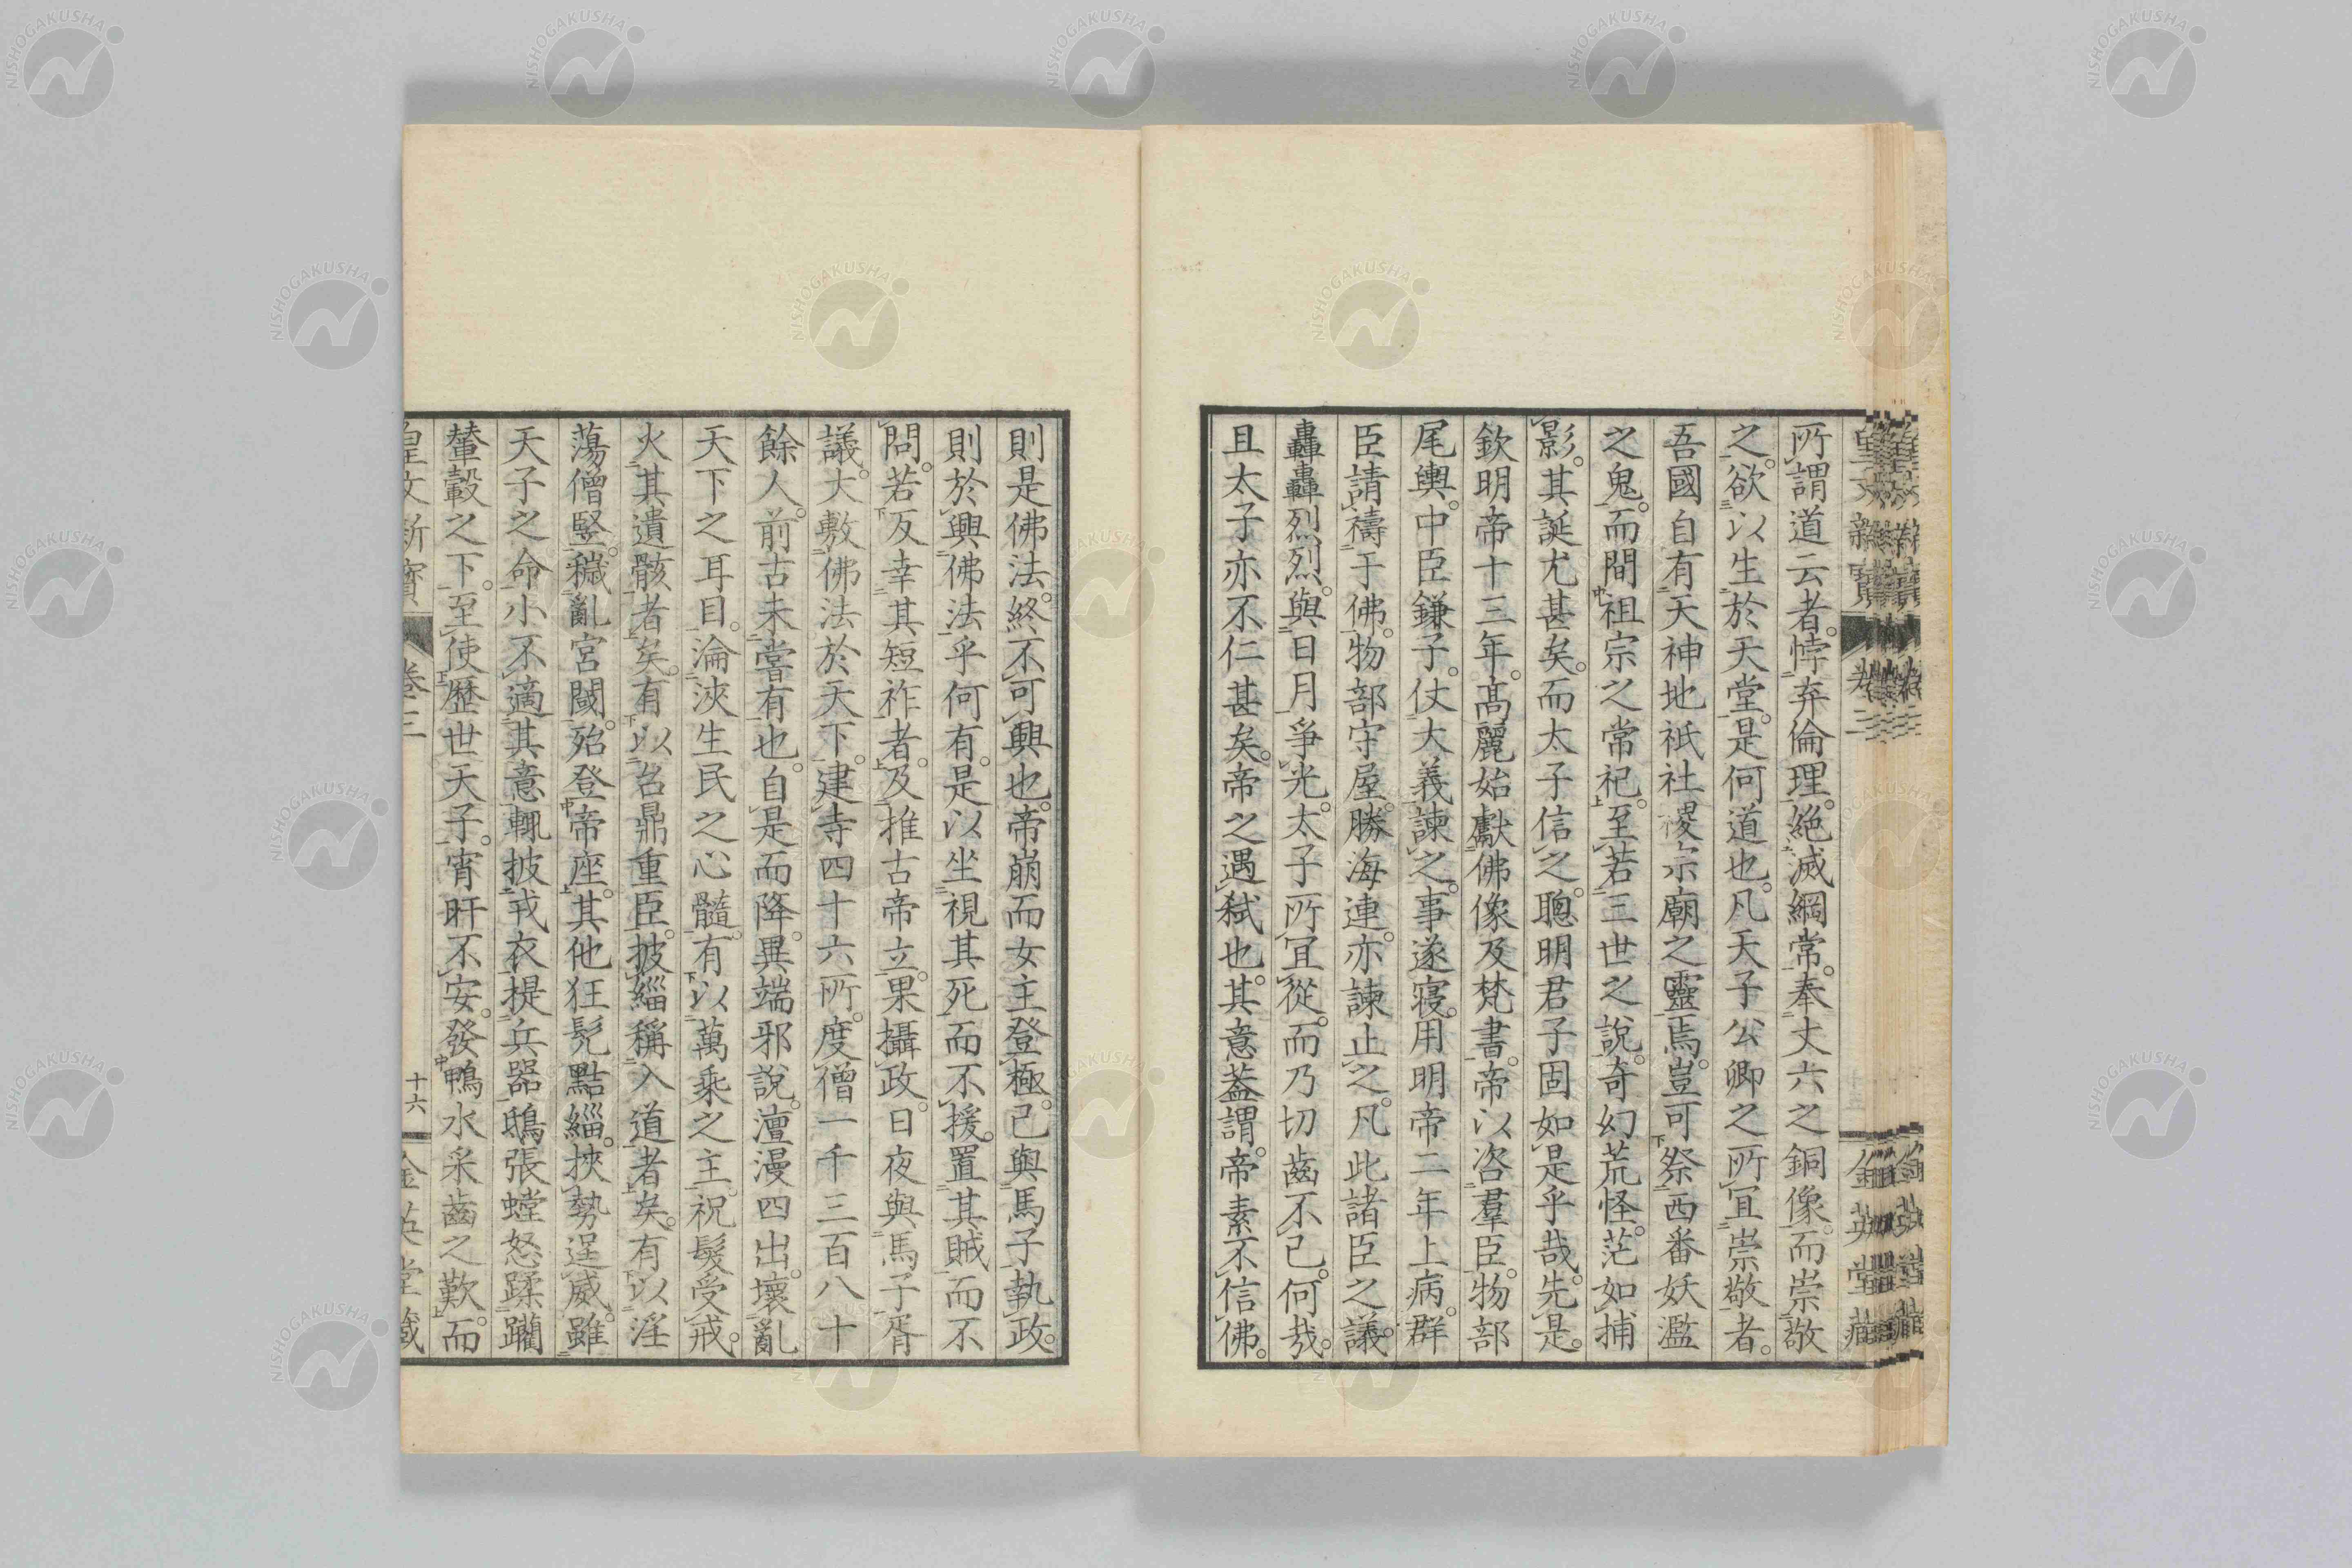 所謂道云者。悖弃倫理。絕滅綱常。奉丈六之銅像。而崇敬
之。欲以生於天堂。是何道也。凡天子公卿之所宜崇敬者。
吾國自有天神地祇社稷宗廟之靈焉。豈可祭西番妖濫
之鬼。而間祖宗之常祀。至若三世之說。奇幻荒怪。茫如捕
影。其誕尤甚矣。而太子信之。聰明君子固如是乎哉。先是。
欽明帝十三年。高麗始獻佛像及梵書。帝以咨羣臣。物部
尾輿。中臣鎌子。仗大義諫之。事遂寢。用明帝二年上病。群
臣請禱于佛。物部守屋。勝海連。亦諫止之。凡此諸臣之議。
轟轟烈烈。與日月爭光。太子所宜從。而乃切齒不已。何哉。
且太子亦不仁甚矣。帝之遇弒也。其意蓋謂。帝素不信佛。
則是佛法。終不可興也。帝崩而女主登極。己與馬子執政。
則於興佛法乎何有。是以坐視其死而不援。置其賊而不
問。若反幸其短祚者。及推古帝立。果攝政。日夜與馬子胥
議。大敷佛法於天下。建寺四十六所。度僧一千三百八十
餘人。前古未嘗有也。自是而降。異端邪說。澶漫四出。壞亂
天下之耳目。淪浹生民之心髓。有以萬乘之主。祝髮受戒。
火其遺骸者矣。有以台鼎重臣。披緇稱入道者矣。有以淫
蕩僧竪。穢亂宮閫。殆登帝座。其他狂髡黠緇。挾勢逞威。雖
天子之命。小不適其意。輒披戎衣。提兵器。鴟張螳怒。蹂躪
輦轂之下。至使歷世天子。宵旰不安。發鴨水采齒之歎。而
皇文新寶 卷三 十六 金英堂藏